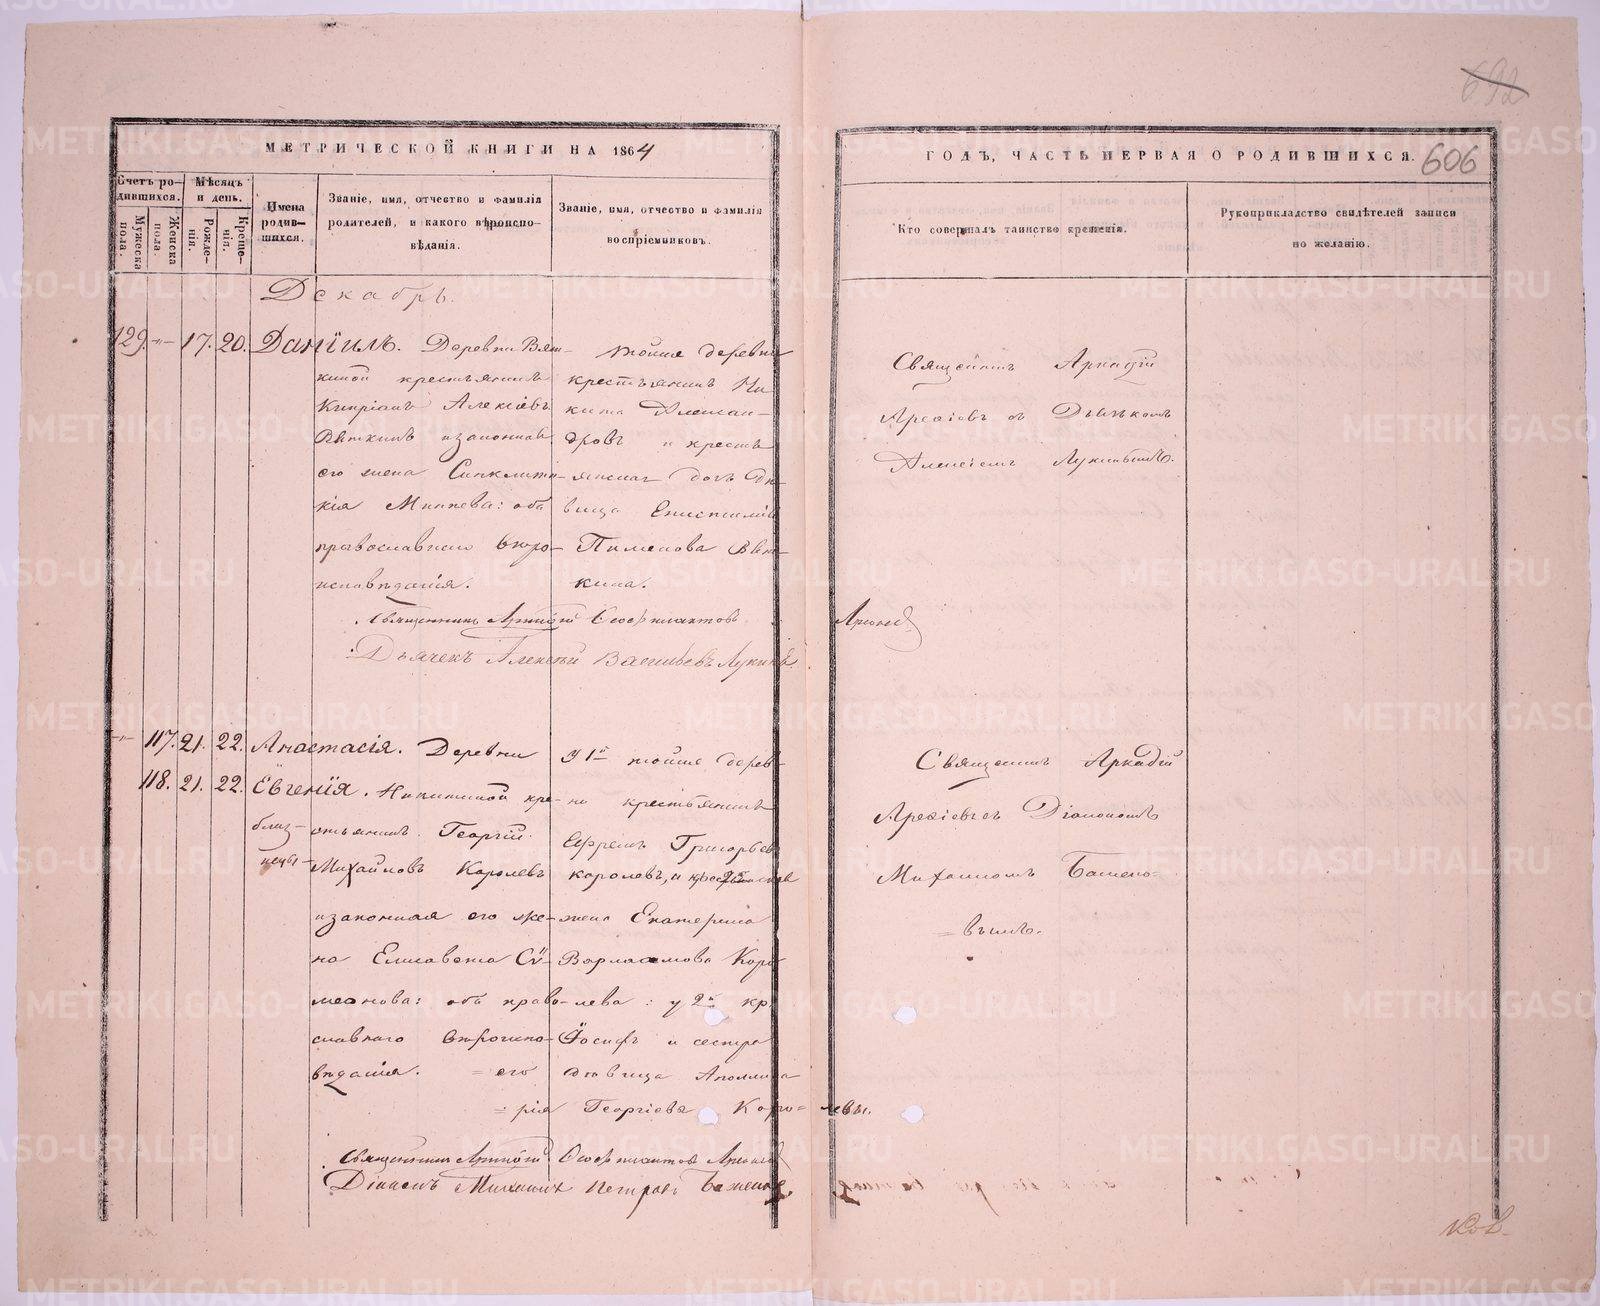 692
МЕТРИЧЕСКОЙ КНИГИ НА 1864
ГОДЪ, ЧАСТЬ ПЕРВАЯ О РОДИВШИХСЯ.
606
Счетъ родившихся.
Мужеска пола.
Женска пола.
Мѣсяцъ и день.
Рожденія.
Крещенія.
Имена родившихся.
Званіе, имя, отчество и фамилія
родителей, и какого вѣроиспо-
вѣданія.
Званіе, имя, отчество и фамилія
воспріемниковъ.
Кто совершалъ таинство крещенія.
Рукоприкладство свидѣтелей записи
по желанію.
Декабрь.
129. -"- 17. 20. Даніилъ.
Деревни Вят-
киной крестьянинъ
Кипріанъ Алексѣевъ
Вяткинъ и законная
его жена Синклити-
кія Минеева: оба
православнаго вѣро-
исповѣданія.
тойже деревни
крестьянинъ Ни
кита Алексан-
дровъ и кресть
янская дочь дѣ-
вица Епистимія
Пименова Вят-
кина.
Священникъ Аркадій
Арсеніевъ съ Дьячкомъ
Алексіемъ Лукинымъ.
Священникъ Аркадій Феофилактовъ
Дьячекъ Алексѣй Васильевъ Лукинъ
-"- 117. 21. 22. Анастасія.
118. 21. 22. Евгенія.
близ-
нецы
Деревни
Никитиной кре-
стьянинъ Георгій
Михайловъ Королевъ
и законная его же-
на Елисавета Сѵ-
меонова: оба право-
славнаго вѣроиспо-
вѣданія.
У 1й тойже дерев-
ни крестьянинъ
Ефремъ Григорьевъ
королевъ, и
жена Екатерина
Варлаамова Коро
лева: у 2й кр.
Іосифъ и сестра
= его дѣвица Аполлина
= рія Георгіева Коро= левы.
Священникъ Аркадій
Арсеніевъ съ Діакономъ
Михаиломъ Бажено-
= вымъ.
Священникъ Аркадій Феофилактовъ
Діаконъ Михаилъ Петровъ Баженов
METRIKI.GASO-URAL.RU